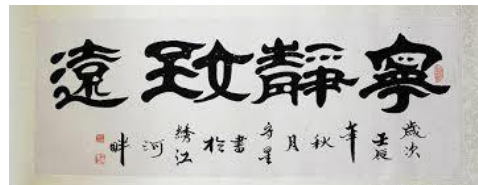 寧靜致遠
歲次
壬辰
年
秋
月
書
於
綉江
河
畔